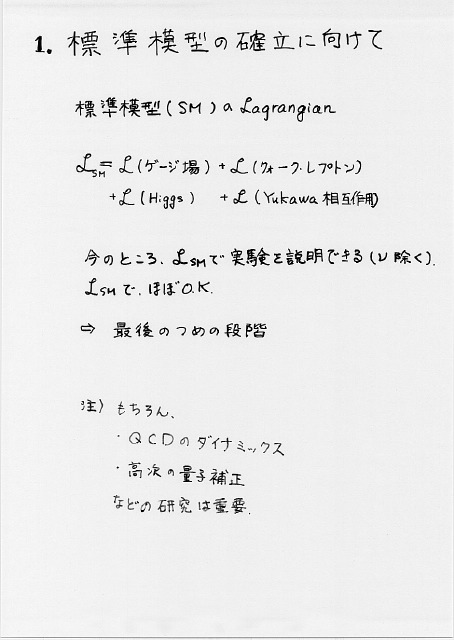 1. 標準模型の確立に向けて
標準模型(SM)の Lagrangian
ℒSM = ℒ(ゲージ場) + ℒ(クォーク・レプトン)
+ ℒ(Higgs) + ℒ(Yukawa 相互作用)
今のところ、ℒSMで実験を説明できる(ν 除く).
ℒSMで、ほぼO.K.
⇨ 最後のつめの段階
注) もちろん、
・QCDのダイナミックス
・高次の量子補正
などの研究は重要.